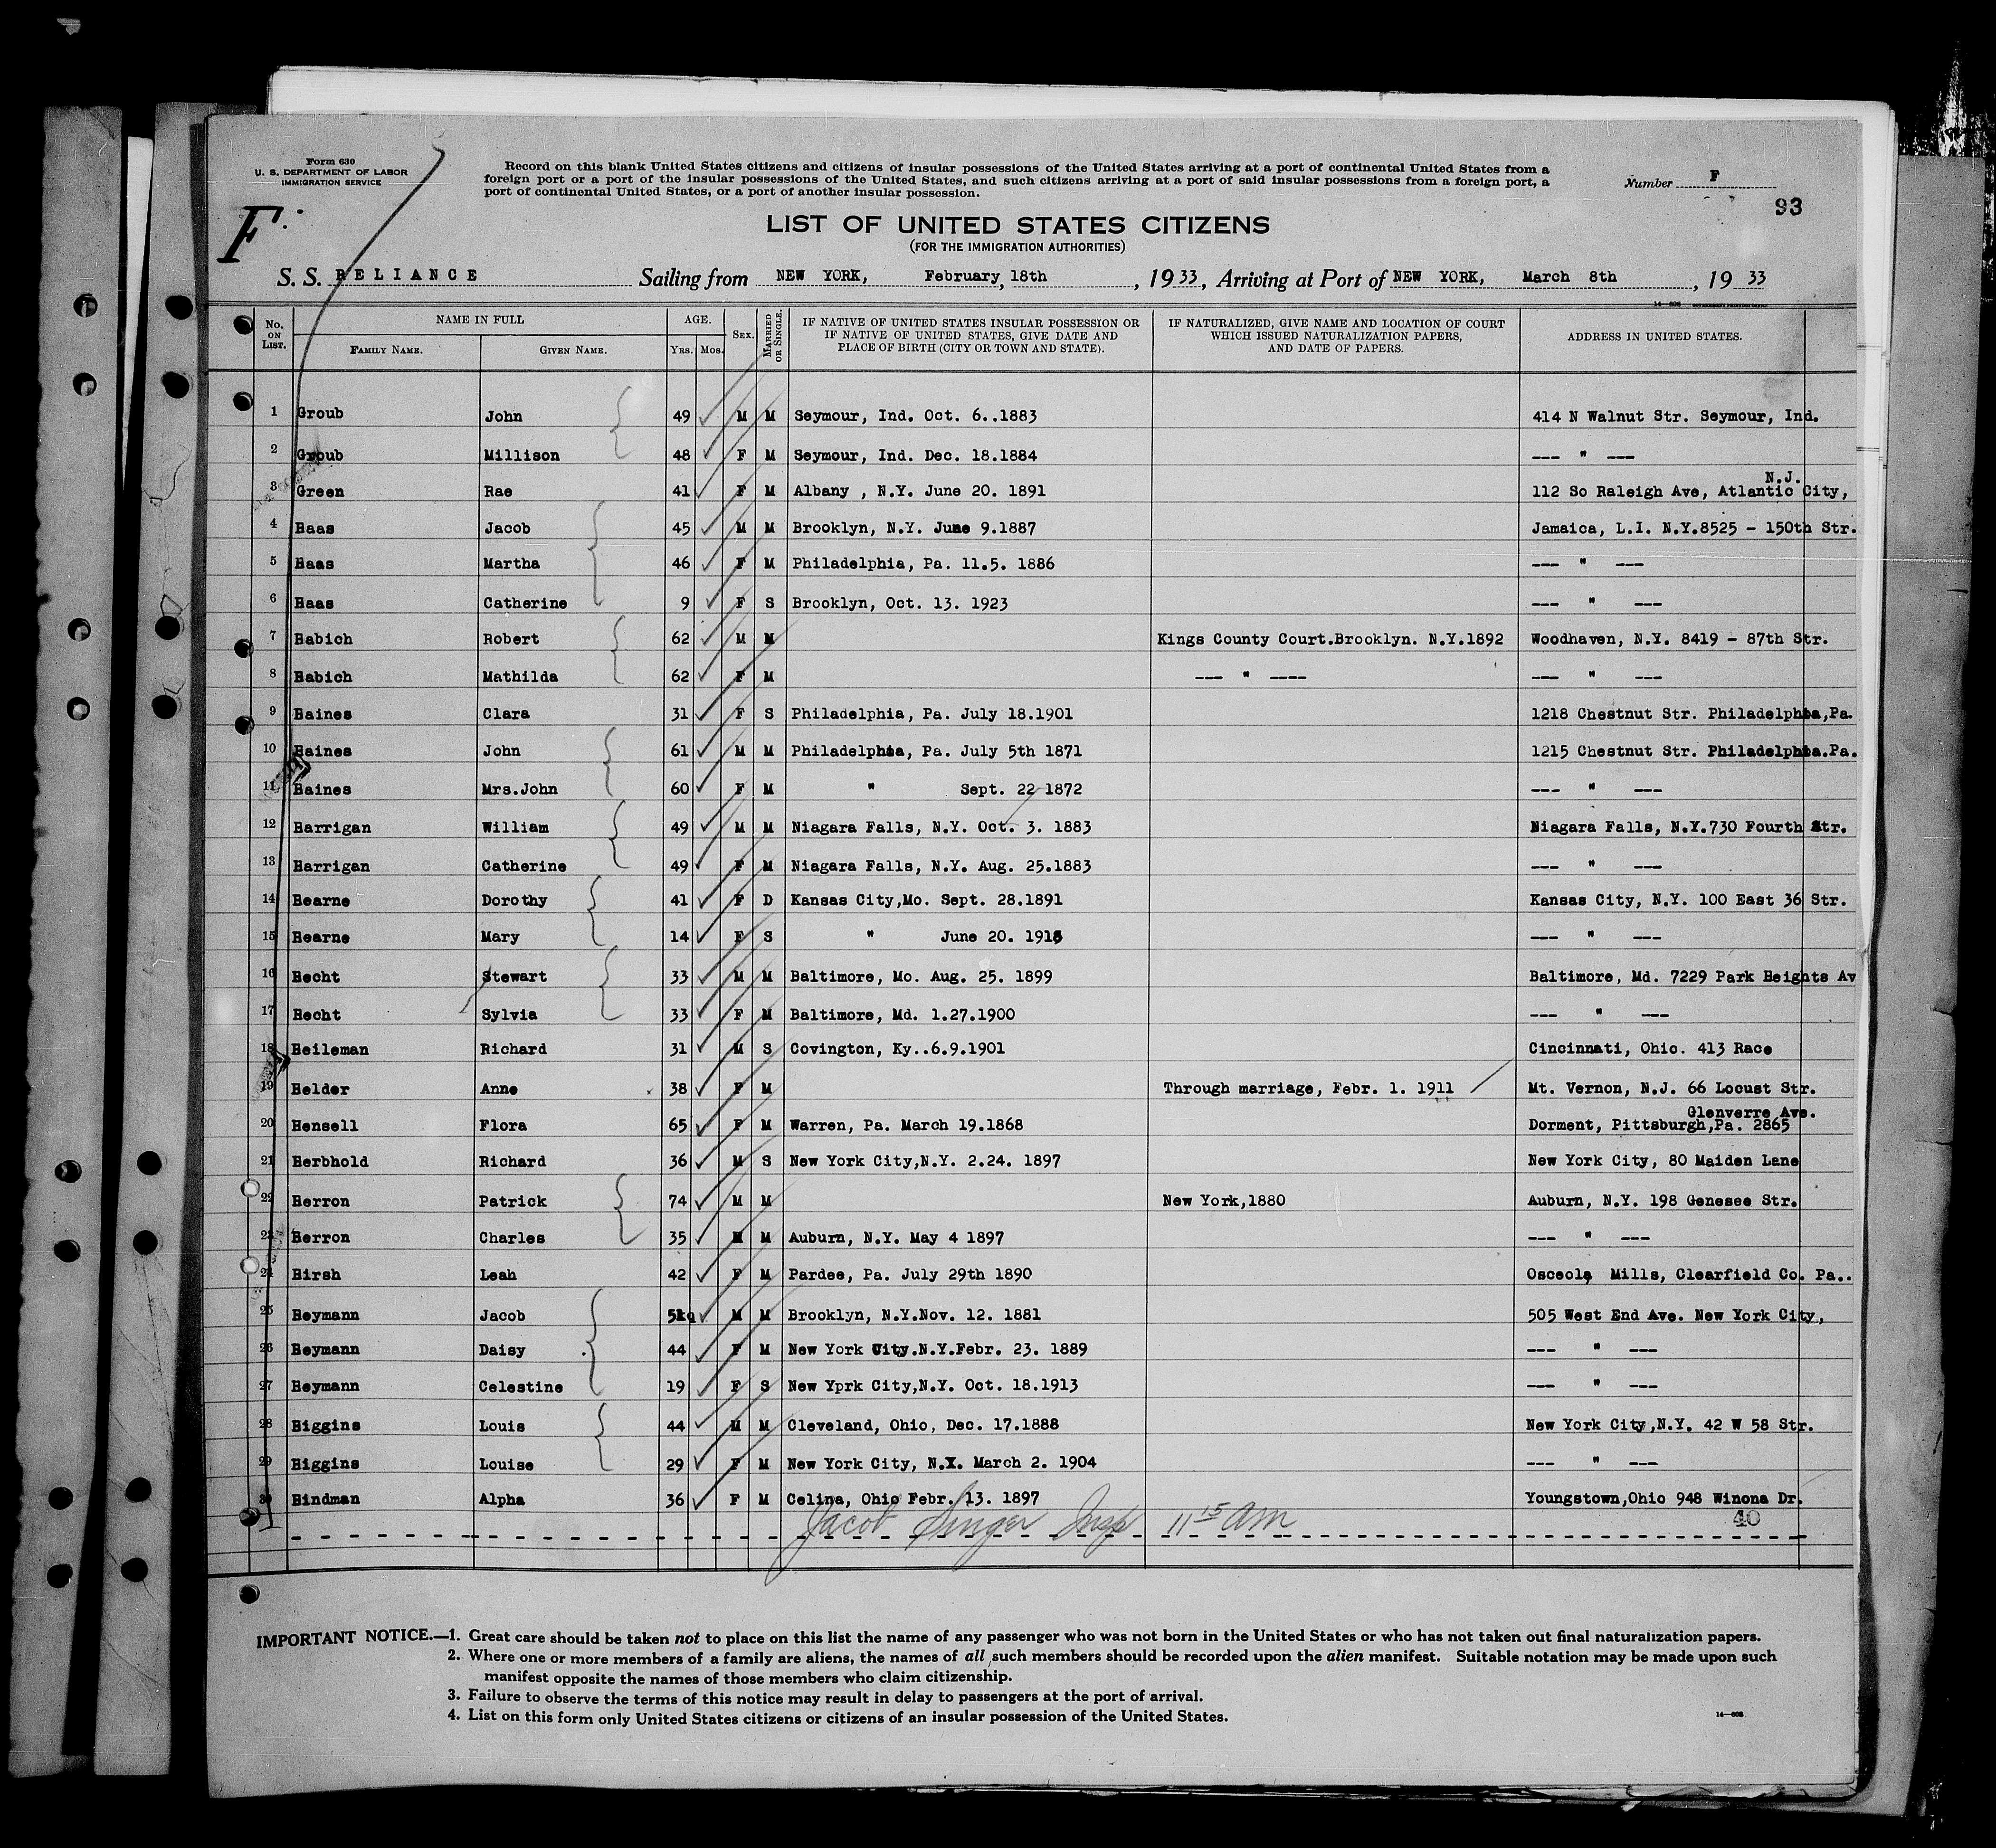 Form 630
U. S. DEPARTMENT OF LABOR
IMMIGRATION SERVICE
Record on this blank United States citizens and citizens of insular possessions of the United States arriving at a port of continental United States from a
foreign port or a port of the insular possessions of the United States, and such citizens arriving at a port of said insular possessions from a foreign port, a
port of continental United States, or a port of another insular possession.
Number F
93
F.
LIST OF UNITED STATES CITIZENS
(FOR THE IMMIGRATION AUTHORITIES)
S. S. RELIANCE Sailing from NEW YORK, February, 18th, 1933, Arriving at Port of NEW YORK, March 8th, 1933
No. ON LIST. NAME IN FULL FAMILY NAME. GIVEN NAME. AGE. YRS. MOS. SEX. MARRIED OR SINGLE. IF NATIVE OF UNITED STATES INSULAR POSSESSION OR IF NATIVE OF UNITED STATES, GIVE DATE AND PLACE OF BIRTH (CITY OR TOWN AND STATE). IF NATURALIZED, GIVE NAME AND LOCATION OF COURT WHICH ISSUED NATURALIZATION PAPERS, AND DATE OF PAPERS. ADDRESS IN UNITED STATES.
1 Groub John 49 M M Seymour, Ind. Oct. 6..1883 414 N Walnut Str. Seymour, Ind.
2 Groub Millison 48 F M Seymour, Ind. Dec. 18.1884 --- " ---
3 Green Rae 41 F M Albany , N.Y. June 20. 1891 112 So Raleigh Ave, Atlantic City, N.J.
4 Haas Jacob 45 M M Brooklyn, N.Y. June 9.1887 Jamaica, L.I. N.Y.8525 - 150th Str.
5 Haas Martha 46 F M Philadelphia, Pa. 11.5. 1886 --- " ---
6 Haas Catherine 9 F S Brooklyn, Oct. 13. 1923 --- " ---
7 Habich Robert 62 M M Kings County Court.Brooklyn. N.Y.1892 Woodhaven, N.Y. 8419 - 87th Str.
8 Habich Mathilda 62 F M --- " ---- --- " ---
9 Haines Clara 31 F S Philadelphia, Pa. July 18.1901 1218 Chestnut Str. Philadelphia,Pa.
10 Haines John 61 M M Philadelphia, Pa. July 5th 1871 1215 Chestnut Str. Philadelphia.Pa.
11 Haines Mrs.John 60 F M " Sept. 22 1872 --- " ---
12 Harrigan William 49 M M Niagara Falls, N.Y. Oct. 3. 1883 Niagara Falls, N.Y.730 Fourth Str.
13 Harrigan Catherine 49 F M Niagara Falls, N.Y. Aug. 25.1883 --- " ---
14 Hearne Dorothy 41 F D Kansas City,Mo. Sept. 28.1891 Kansas City, N.Y. 100 East 36 Str.
15 Hearne Mary 14 F S " June 20. --- " ---
16 Hecht Stewart 33 M M Baltimore, Mo. Aug. 25. 1899 Baltimore, Md. 7229 Park Heights Av
17 Hecht Sylvia 33 F M Baltimore, Md. 1.27.1900 --- " ---
18 Heileman Richard 31 M S Covington, Ky..6.9.1901 Cincinnati, Ohio. 413 Race
19 Helder Anne 38 F M Through marriage, Febr. 1. 1911 Mt. Vernon, N.J. 66 Locust Str.
20 Hensell Flora 65 F M Warren, Pa. March 19.1868 Dorment, Pittsburgh,Pa. 2865 Glenverre Ave.
21 Herbhold Richard 36 M S New York City,N.Y. 2.24. 1897 New York City, 80 Maiden Lane
22 Herron Patrick 74 M M New York,1880 Auburn, N.Y. 198 Genesee Str.
23 Herron Charles 35 M M Auburn, N.Y. May 4 1897 --- " ---
24 Hirsh Leah 42 F M Pardee, Pa. July 29th 1890 Osceola Mills, Clearfield Co. Pa..
25 Heymann Jacob M M Brooklyn, N.Y.Nov. 12. 1881 505 West End Ave. New York City,
26 Heymann Daisy 44 F M New York City.N.Y.Febr. 23. 1889 --- " ---
27 Heymann Celestine 19 F S New Yprk City,N.Y. Oct. 18.1913 --- " ---
28 Higgins Louis 44 M M Cleveland, Ohio, Dec. 17.1888 New York City,N.Y. 42 W 58 Str.
29 Higgins Louise 29 F M New York City, N.Y. March 2. 1904 --- " ---
30 Hindman Alpha 36 F M Celina, Ohio Febr. 13. 1897 Youngstown,Ohio 948 Winona Dr.
Jacob Singer Insp 11 15 am
40
IMPORTANT NOTICE.—1. Great care should be taken not to place on this list the name of any passenger who was not born in the United States or who has not taken out final naturalization papers.
2. Where one or more members of a family are aliens, the names of all such members should be recorded upon the alien manifest. Suitable notation may be made upon such
manifest opposite the names of those members who claim citizenship.
3. Failure to observe the terms of this notice may result in delay to passengers at the port of arrival.
4. List on this form only United States citizens or citizens of an insular possession of the United States.
14—608